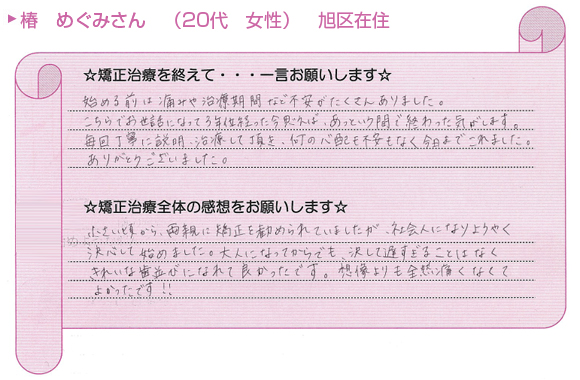 椿 めぐみさん （20代 女性） 旭区在住
☆矯正治療を終えて・・・一言お願いします☆
始める前は痛みや治療期間など不安がたくさんありました。
こちらでお世話になって3年位経った今思えば、あっという間で終わった気がします。
毎回丁寧に説明、治療して頂き、何の心配も不安もなく今日までこれました。
ありがとうございました。
☆矯正治療全体の感想をお願いします☆
小さい頃から、両親に矯正を勧められていましたが、社会人になりようやく
決心して始めました。大人になってからでも、決して遅すぎることはなく
きれいな歯並びになれて良かったです。想像よりも全然痛くなくて
よかったです!!